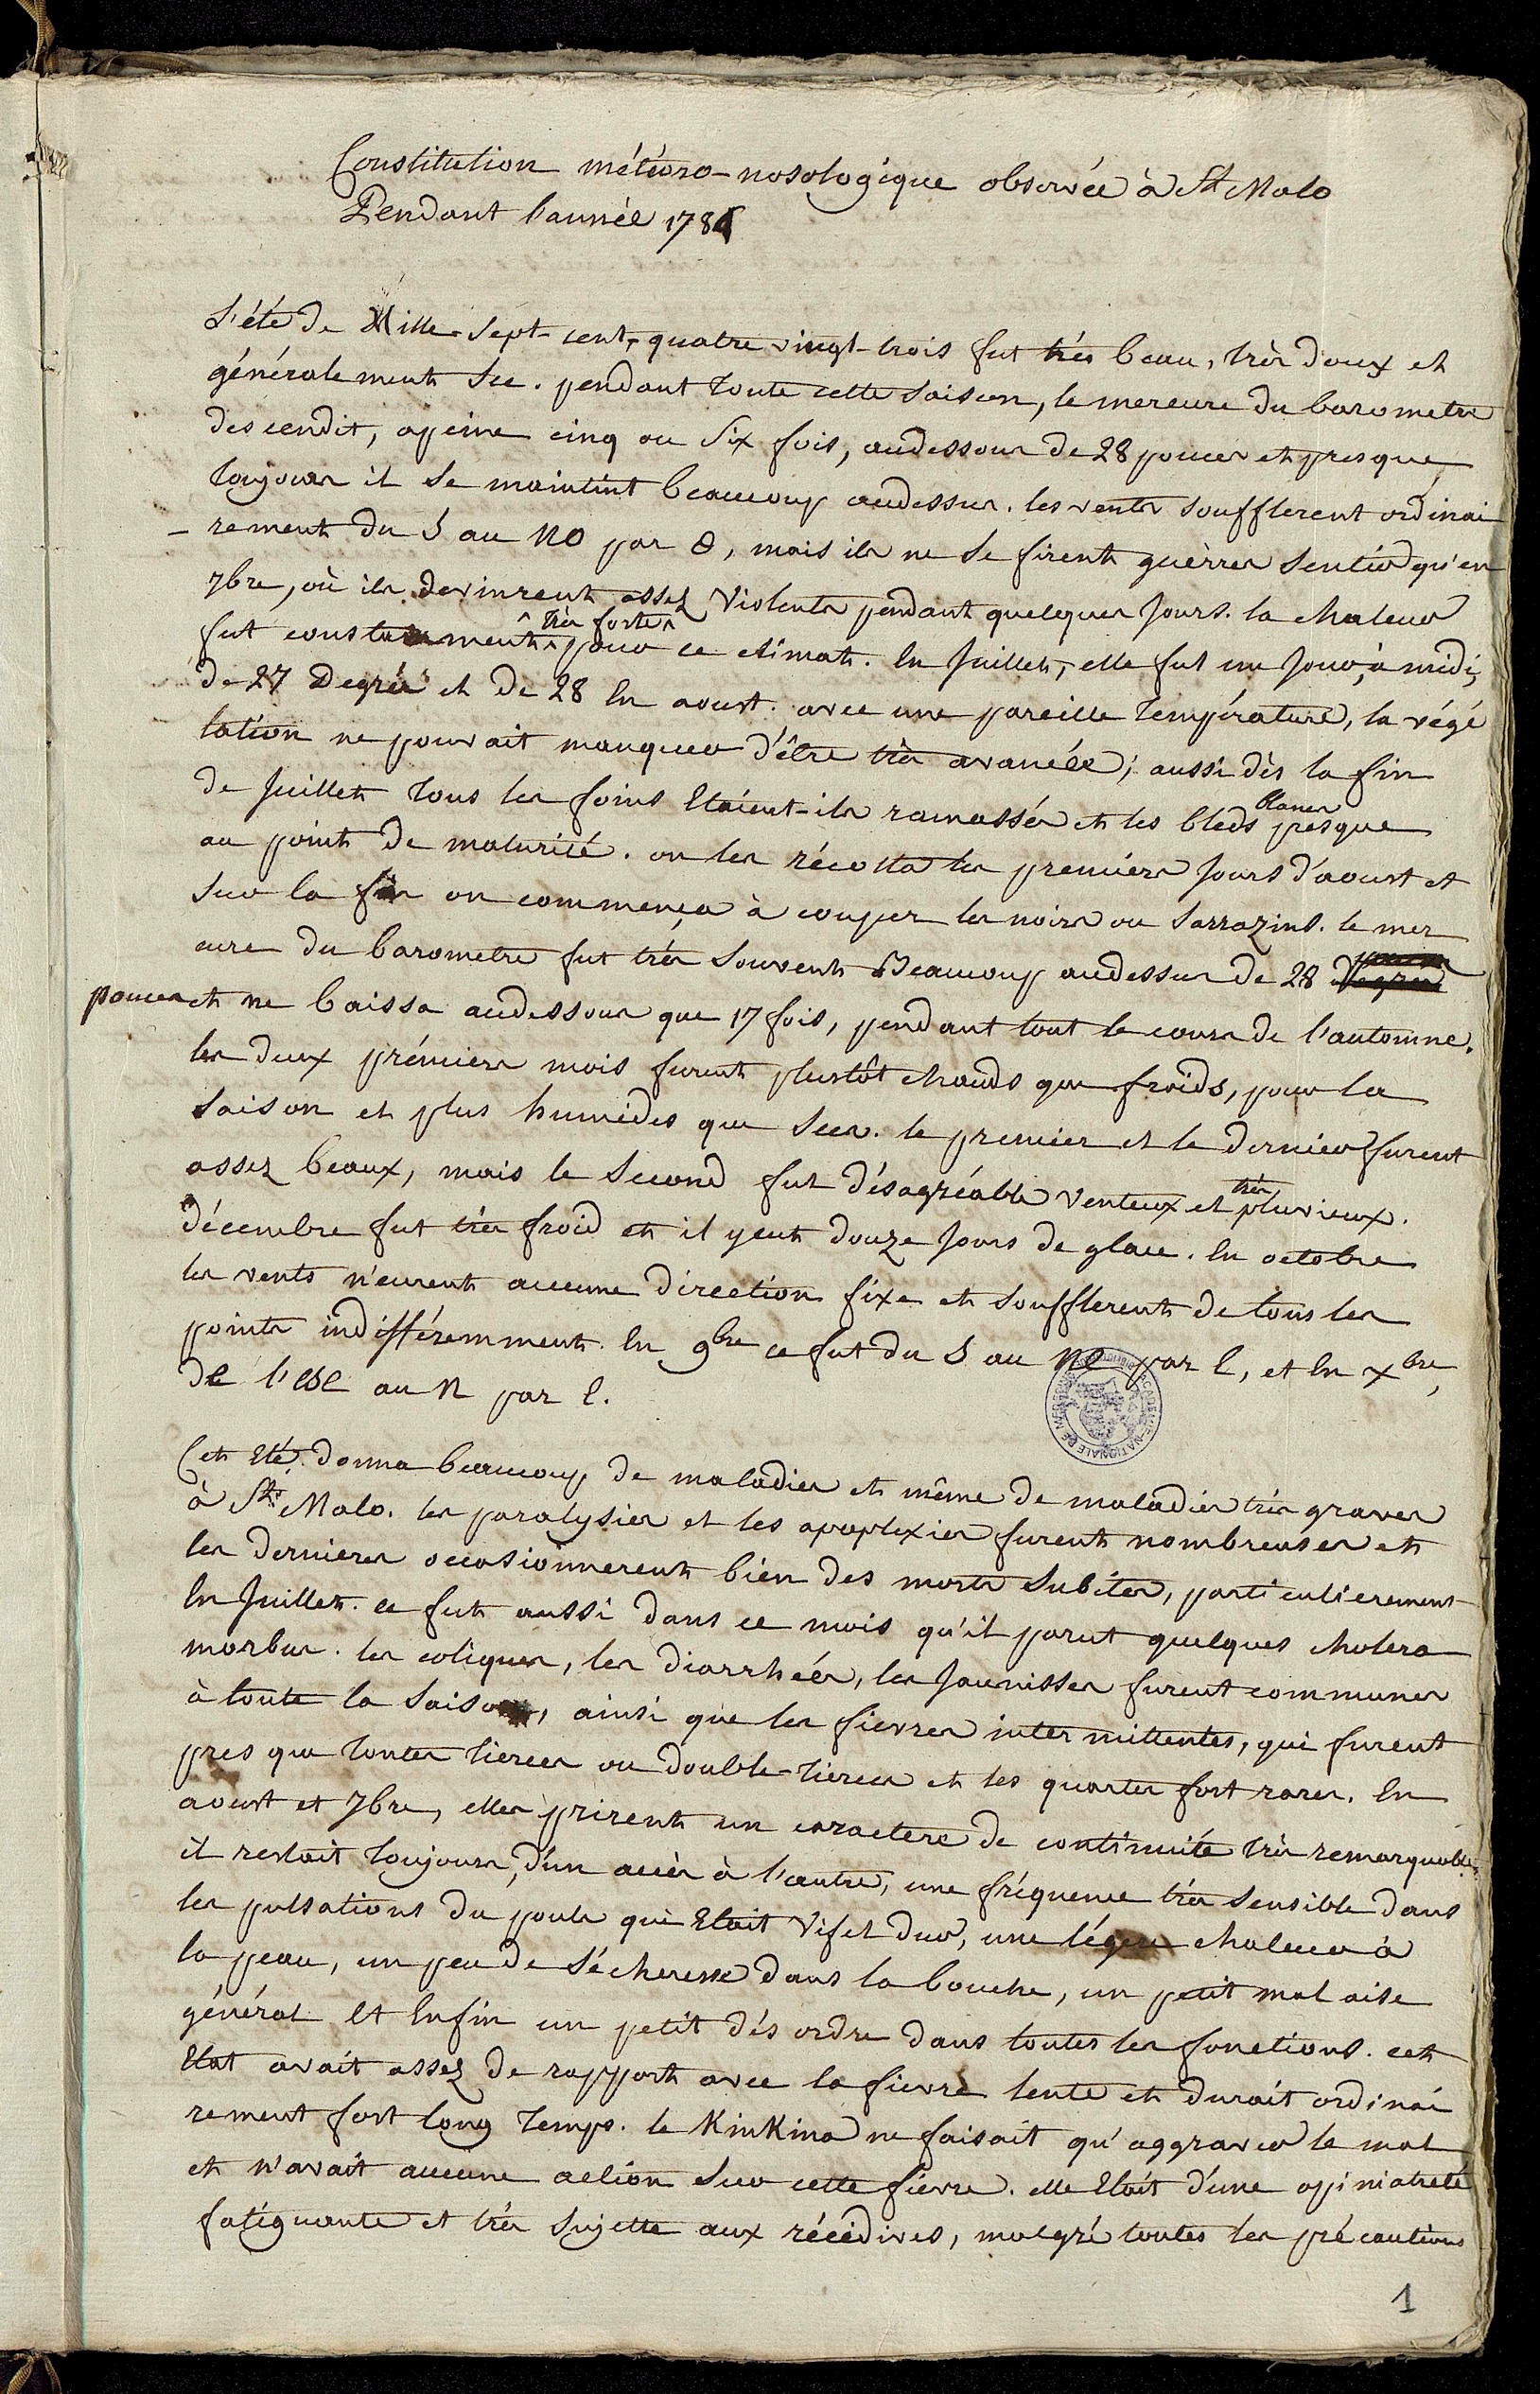 Constitution météoro-nosologique observée à St Malo
Pendant l'année 178
L'été de Mille-Sept-cent-quatre vingt-trois fut très beau, très doux et
généralement sec. pendant toute cette saison, le mercure du barometre
descendit, apeine cinq ou six fois, audessous de 28 pouces et presque
toujours il se maintint beaucoup audessus. les vents soufflerent ordinai
- rement du S au NO par O, mais ils ne se firent guèrres sentir qu'en
7bre, où ils devinrent assez violents pendant quelques jours. la chaleur
fut constamment très forte pour ce climat. En Juillet, elle fut un jour, à midi,
de 27 Degrés et de 28 En aoust. avec une pareille température, la végé
tation ne pouvait manquer d'être très avancée; aussi dès la fin
de Juillet tous les foins Etaient-ils ramassés et les bleds blancs presque
au point de maturité. on les récolta les premiers jours d'aoust et
sur la fin on commença à couper les noirs ou sarrazins. le mer
cure du barometre fut très souvent Beaucoup audessus de 28
pouces et ne baissa audessous que 17 fois, pendant tout le cours de l'automne.
les deux prémiers mois furent plustôt chauds que froids, pour la
saison et plus humides que secs. le premier et le dernier furent
assez beaux, mais le second fut désagréable venteux et très pluvieux.
décembre fut très froid et il yeut douze jours de glace. En octobre
les vents n'eurent aucune direction fixe et soufflerent de tous les
points indifféremment. En 9bre ce fut du S au NE par E, et En Xbre,
de l'ESE au N par E.
Cet Eté donna beaucoup de maladies et même de maladies très graves
à St Malo. les paralysies et les apoplexies furent nombreuses et
les dernieres occasionnerent bien des morts subites, particulierement
En Juillet. ce fut aussi dans ce mois qu'il parut quelques cholera
morbus. les coliques, les diarrhées, les jaunisses furent communes
à toute la saison, ainsi que les fievres intermittentes, qui furent
presque toutes tierces ou double-tierces et les quartes fort rares. En
aoust et 7bre, elles prirent un caractere de continuité très remarquable.
il restait toujours, d'un accès à l'autre, une fréquence très sensible dans
les pulsations du pouls qui Etait vif et dur, une légere chaleur à
la peau, un peu de sécheresse dans la bouche, un petit mal aise
général Et Enfin un petit désordre dans toutes les fonctions. cet
Etat avait assez de rapport avec la fievre lente et durait ordinai
rement fort long temps. le KinKina ne faisait qu'aggraver le mal
et n'avait aucune action sur cette fievre. elle Etait d'une opiniatreté
fatiguante et très sujette aux récidives, malgré toutes les précautions
1